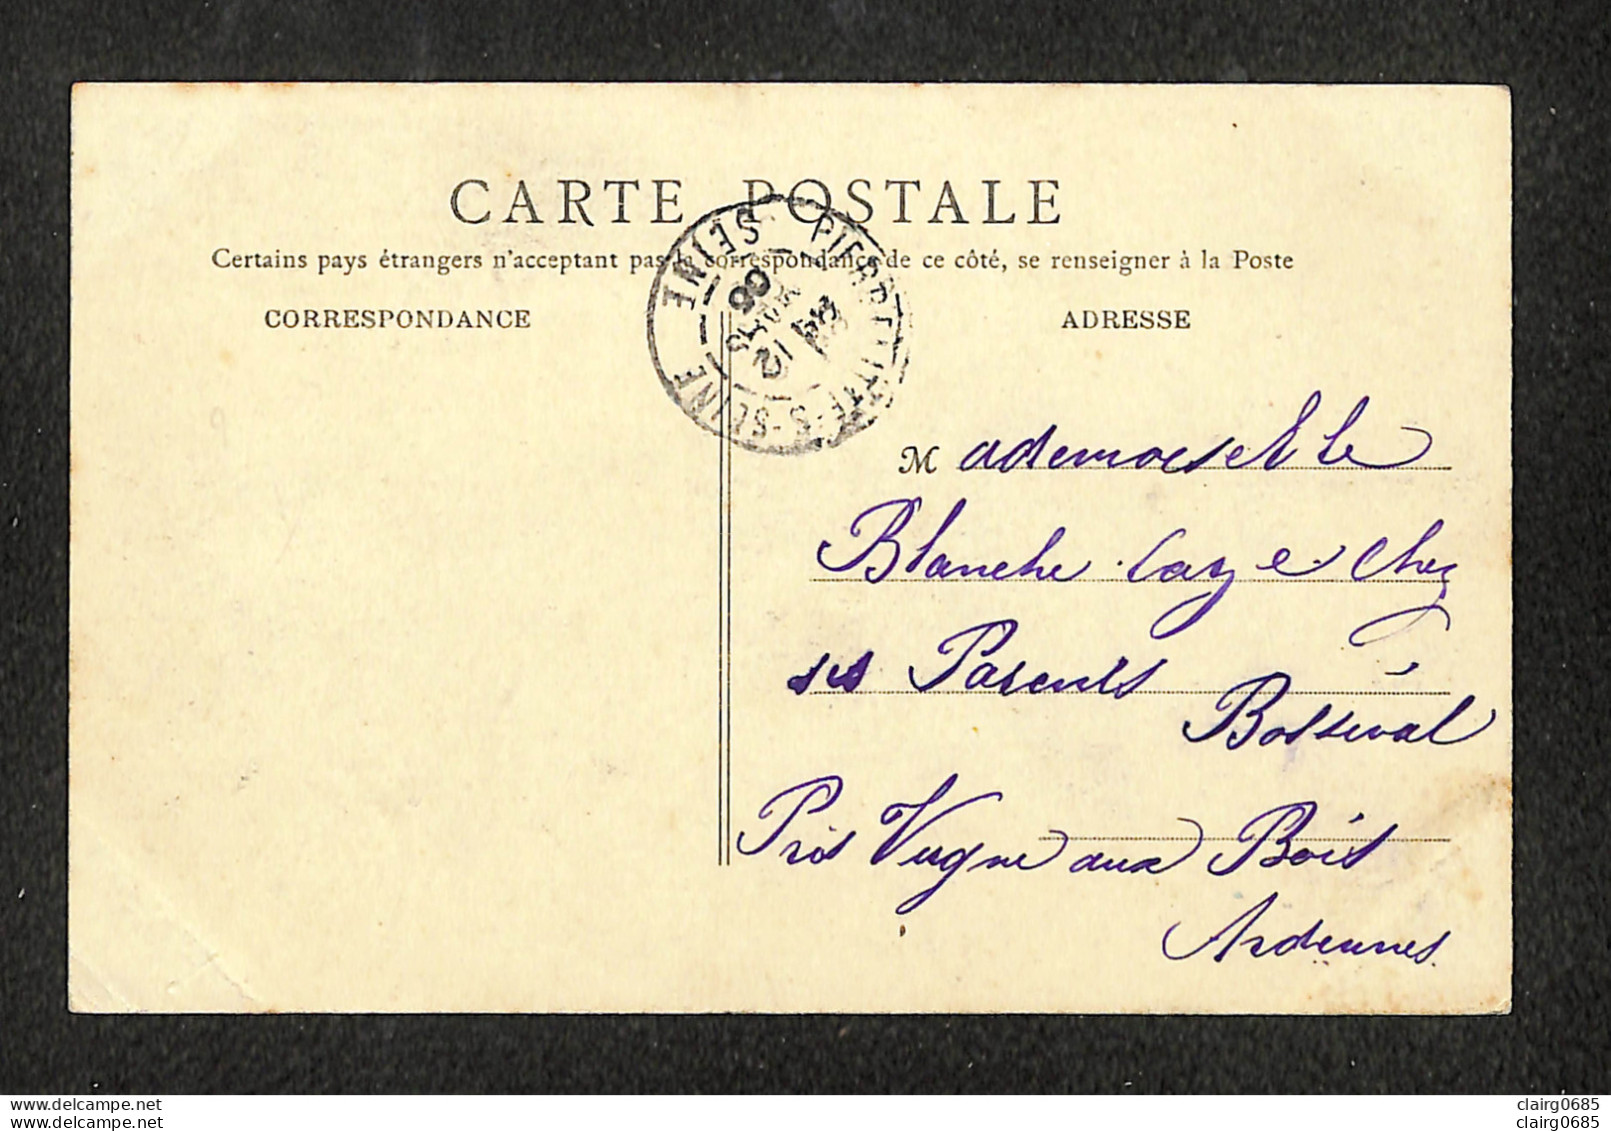 CARTE POSTALE
Certains pays étrangers n'acceptant pas la correspondance de ce côté, se renseigner à la Poste
CORRESPONDANCE
ADRESSE
PIERREFITTE-S-SEINE
SEINE
12
06
Mademoiselle
Blanche Laz e chez
ses Parents
Bosseval
Près Vrigne aux Bois
Ardennes.
clairg0685
clairg0685
www.delcampe.net
www.delcampe.net